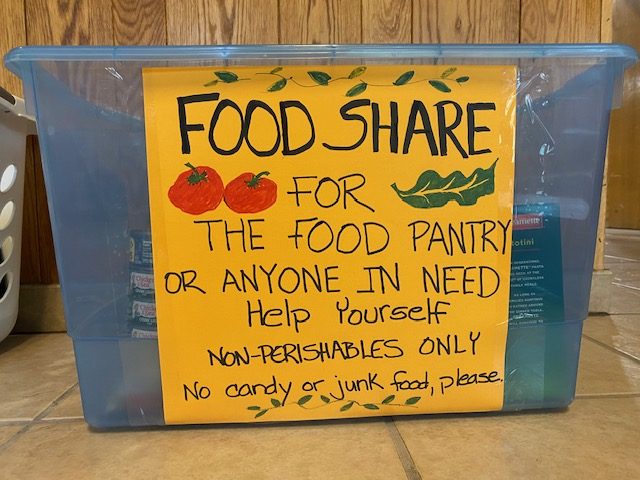 FOOD SHARE
FOR
THE FOOD PANTRY
OR ANYONE IN NEED
Help Yourself
NON-PERISHABLES ONLY
No candy or junk food, please.